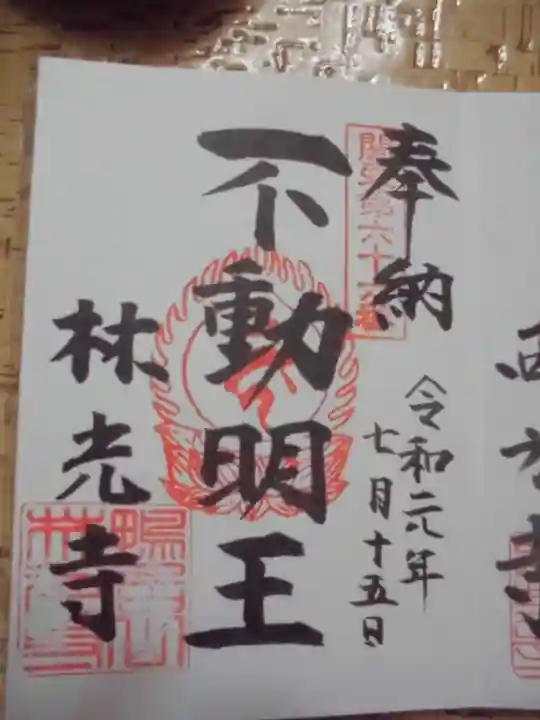 奉納
令和元年
七月十五日
不動明王
林光寺
西方寺